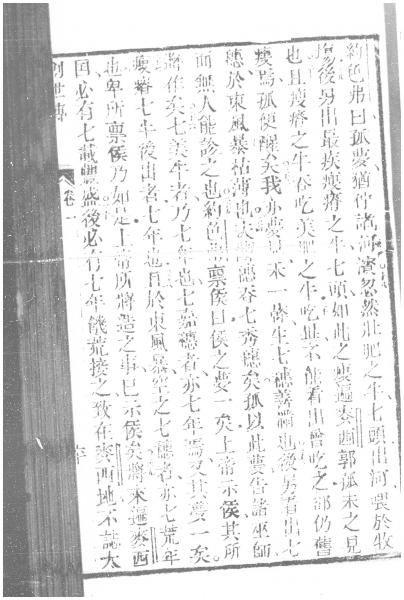 約色弗曰孤夢猶佇諸河濱忽然壯肥之牛七頭出河喂於牧
塲後另出最疾瘦瘠之牛七頭如此之瘦遍麥西郭孤未之見
也且瘦瘠之牛吞吃美肥之牛吃訖不能看出曾吃之仍舊
瘦焉孤便醒矣我亦夢見禾一莖生七穗善滿也後另看出七
穗於東風暴枯薄也夫穗吞七秀穗矣孤以此夢告諸巫師
而無人能診之也約色弗禀侯曰侯之夢一矣上帝示侯其所
將作矣七美牛者乃七年也七嘉穗者亦七年焉其夢一矣
瘦瘠七牛後出者七年也且於東風暴空之七穗者亦七荒年
也卑所禀侯乃如是上帝所將造之事已示侯矣將來遍麥西
囘必有七載豐盛後必有七年饑荒接之致在麥西地不誌大
創世傳 卷一